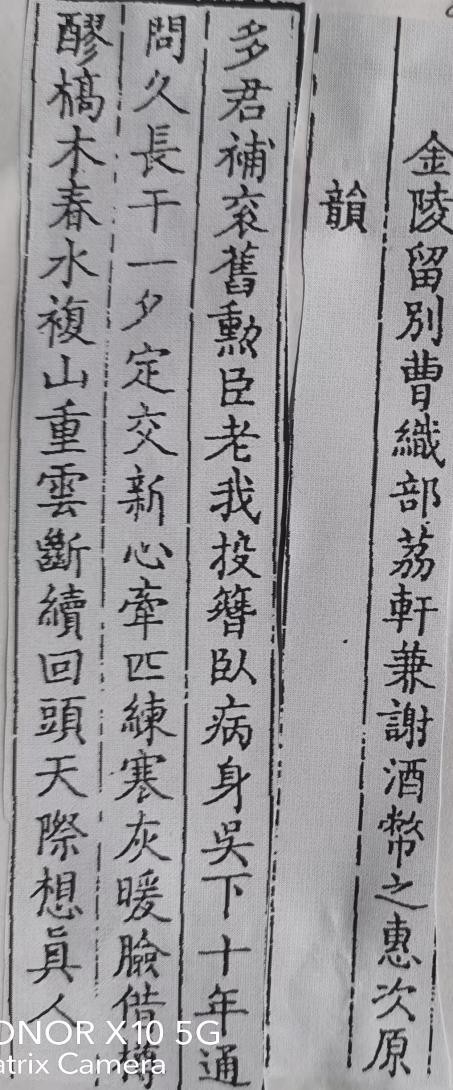 金陵留別曹織部荔軒兼謝酒幣之惠次原
韻
多君補袞舊勳臣老我投簪臥病身吳下十年通
問久長干一夕定交新心牽匹練寒灰暖臉借樽
醪槁木春水複山重雲斷續回頭天際想眞人
ONOR X10 5G
atrix Camera